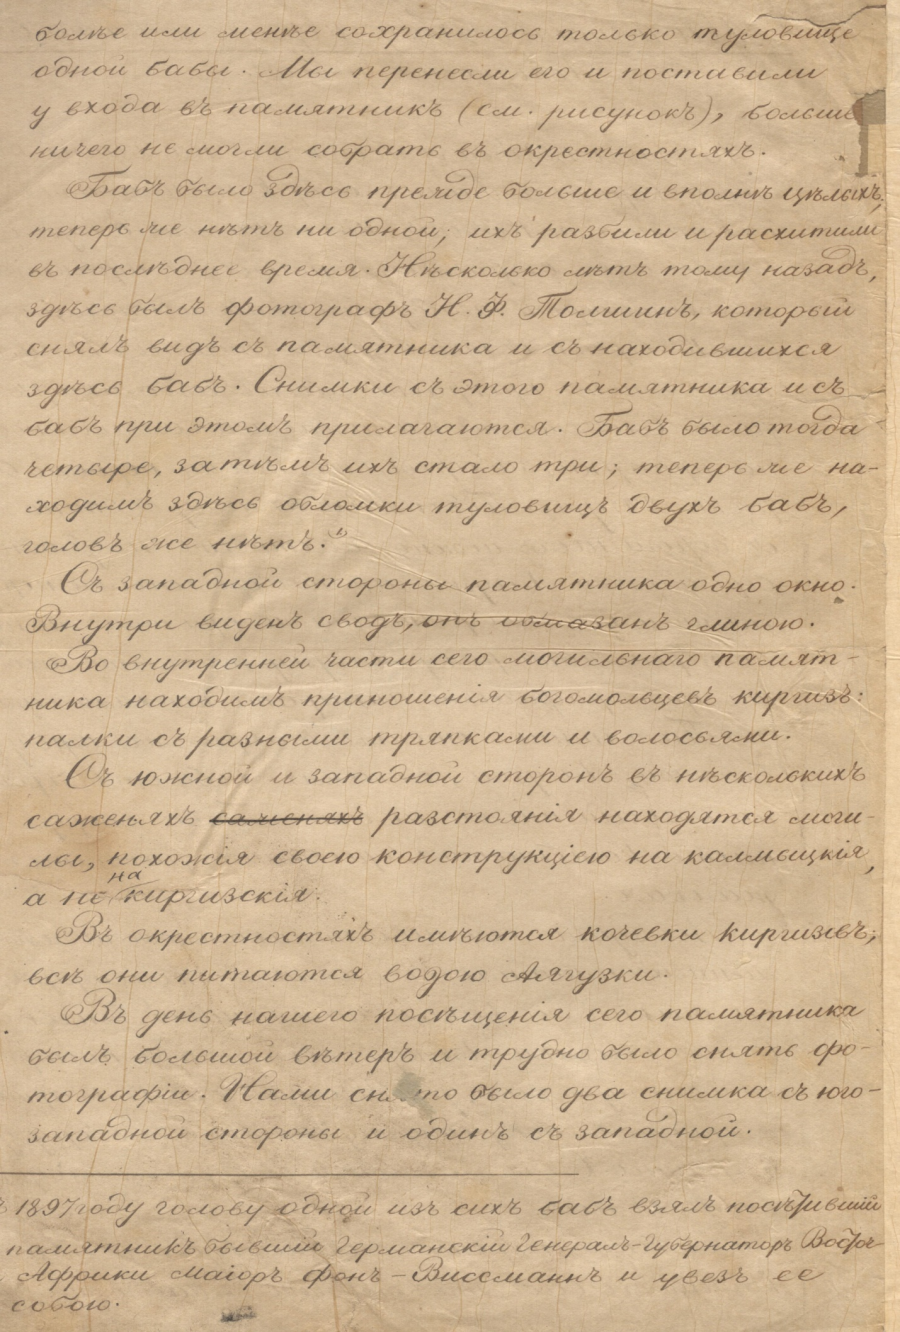 болѣе или менѣе сохранилось только туловище
одной бабы. Мы перенесли его и поставили
у входа въ памятникъ (см. рисунокъ), больше
ничего не могли собрать въ окрестностяхъ.
Бабъ было здѣсь прежде больше и вполнѣ цѣлыхъ,
теперь же нѣтъ ни одной; ихъ разбили и расхитили
въ послѣднее время. Нѣсколько лѣтъ тому назадъ,
здѣсь былъ фотографъ Н. Ф. Толшинъ, который
снялъ видъ съ памятника и съ находившихся
здѣсь бабъ. Снимки съ этого памятника и съ
бабъ при этомъ прилагаются. Бабъ было тогда
четыре, затѣмъ ихъ стало три; теперь же на-
ходимъ здѣсь обломки туловищъ двухъ бабъ,
головъ же нѣтъ.¹⁾
Съ западной стороны памятника одно окно.
Внутри виденъ сводъ, онъ обмазанъ глиною.
Во внутренней части сего могильнаго памят-
ника находимъ приношенія богомольцевъ киргизъ:
палки съ разными тряпками и волосьями.
Съ южной и западной сторонъ въ нѣсколькихъ
саженяхъ саженяхъ разстоянія находятся моги-
лы, похожія своею конструкціею на калмыцкія,
а не на киргизскія.
Въ окрестностяхъ имѣются кочевки киргизовъ;
всѣ они питаются водою Аягузки.
Въ день нашего посѣщенія сего памятника
былъ большой вѣтеръ и трудно было снять фо-
тографіи. Нами снято было два снимка съ юго-
западной стороны и одинъ съ западной.
ъ 1897 году голову одной изъ сихъ бабъ взялъ посѣтившій
памятникъ бывшій Германскій Генералъ-Губернаторъ Восточ-
Африки Маіоръ фонъ-Виссманнъ и увезъ ее
собою.